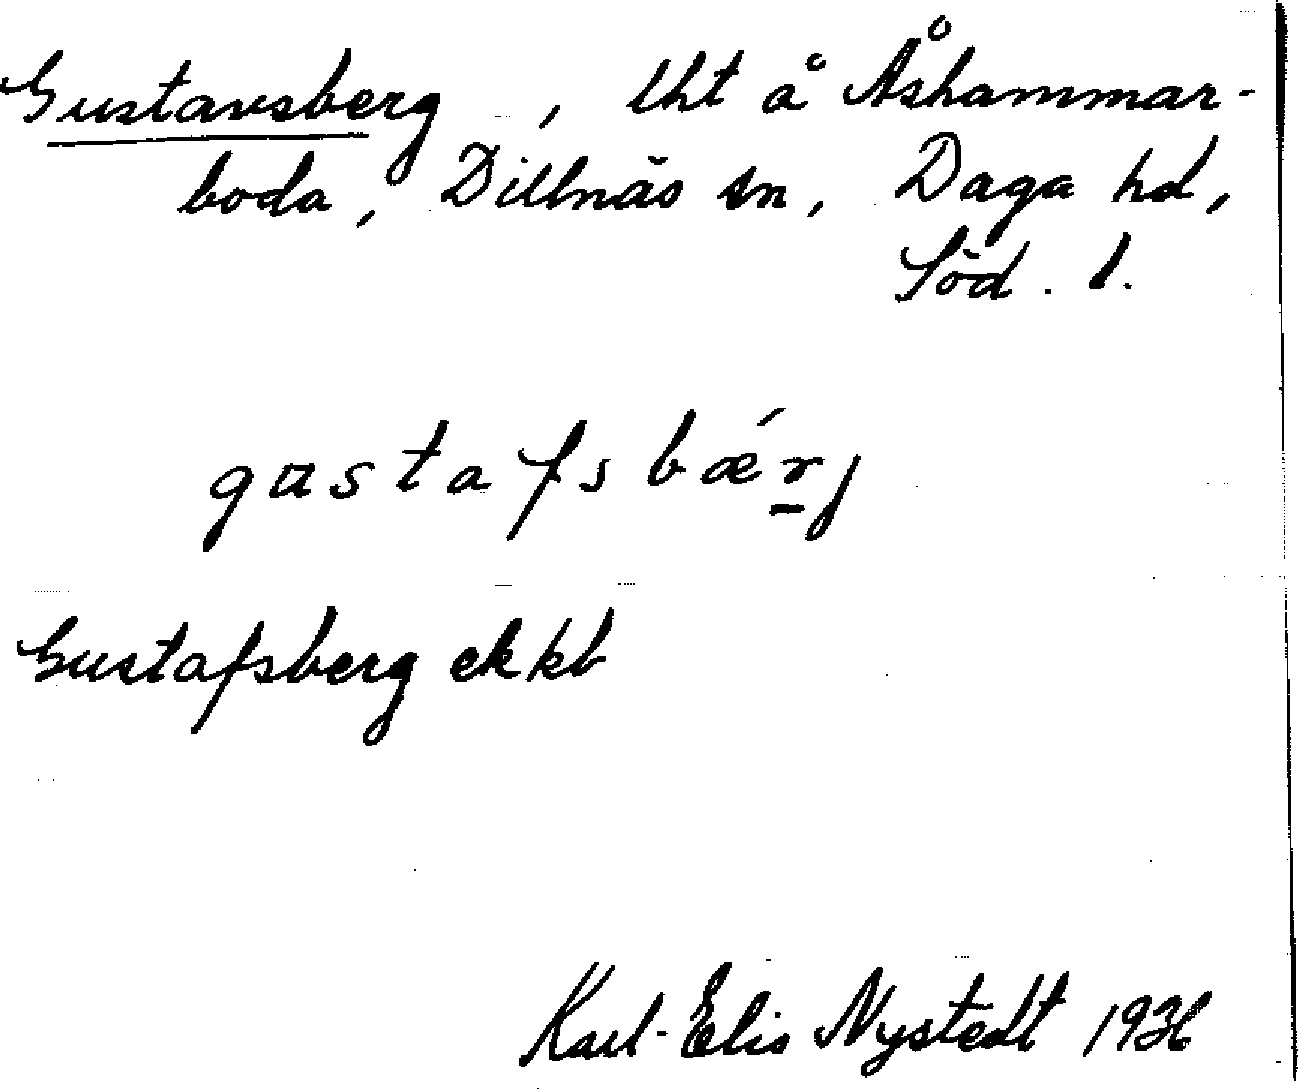 Gustavsberg, lht å Åshammar-
boda, Dillnäs sn, Daga hd,
Söd. l.
gustafsbǽr̠j
Gustafsberg ekkb
Karl-Elis Nystedt 1936